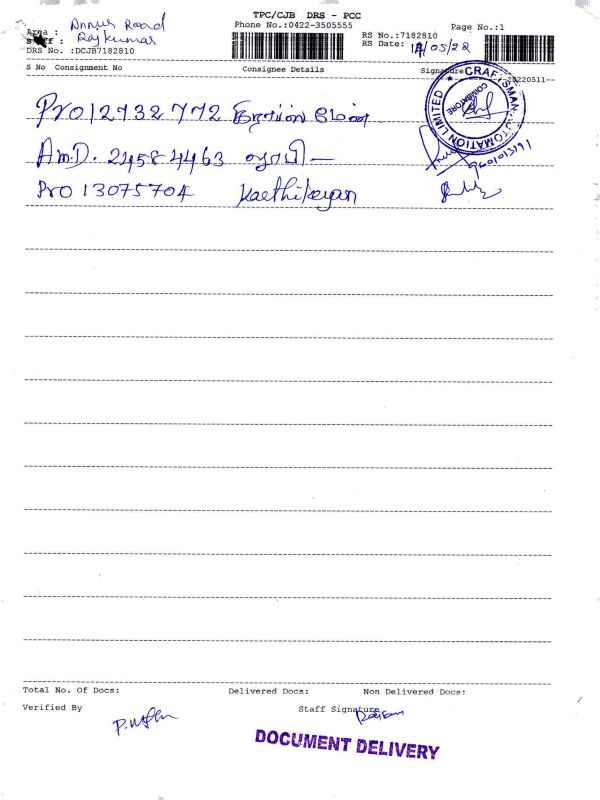 TPC/CJB DRS - PCC
Phone No.:0422-3505555
Page No.:1
Area : Annur Road
Staff : Rajkumar
RS No.:7182810
DRS No. :DCJB7182810
RS Date: /05/22
S No Consignment No Consignee Details Signature 20220511--
CRAFTSMAN AUTOMATION LIMITED
COIMBATORE
Pro 12732772
AMD. 24584463
Pro 13075704 Karthikeyan
Total No. Of Docs: Delivered Docs: Non Delivered Docs:
Verified By Staff Signature
DOCUMENT DELIVERY